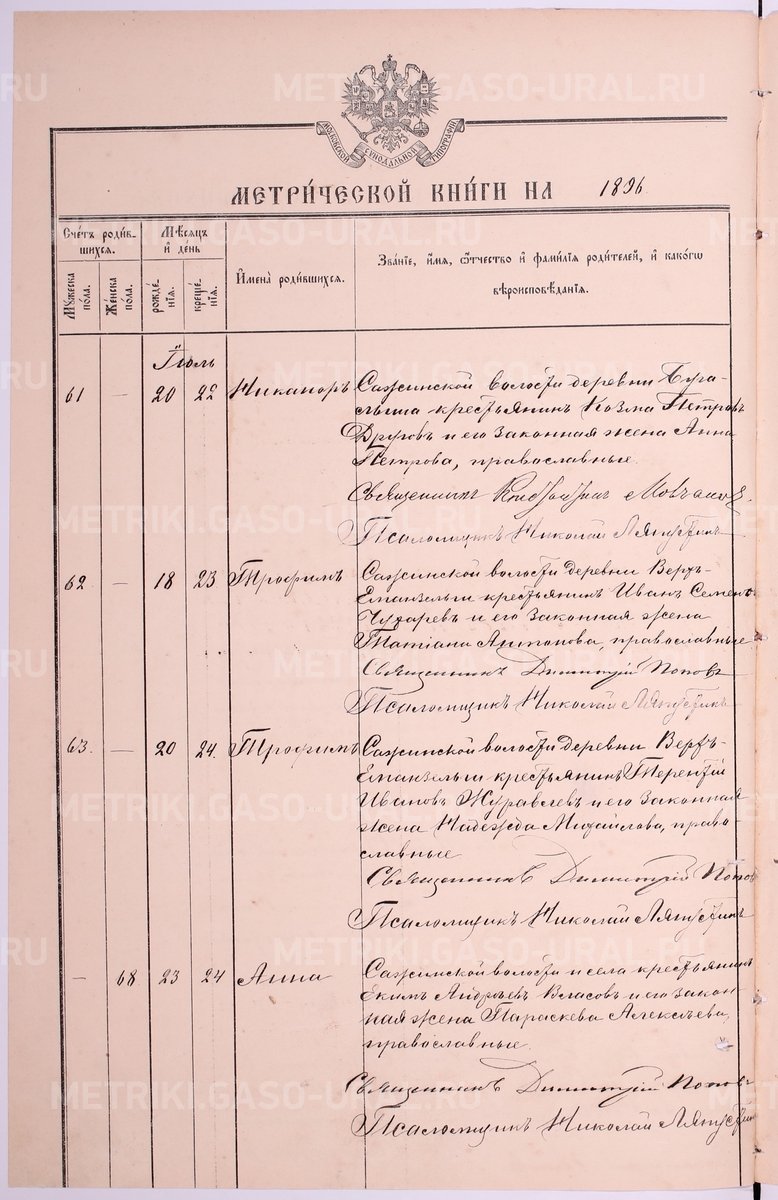 МОСКОВСКОЙ СѴНОДАЛЬНОЙ ТИПОГРАФІИ
МЕТРИ́ЧЕСКОЙ КНИ́ГИ НА 1896
Сче́тъ роди́вшихся.
Мѣсяцъ и҆ де́нь
Имена̀ роди́вшихся.
Зва́нїе, и҆́мя, ѻ҆́тчество и҆ фами́лїя роди́телей, и҆ како́гѡ вѣроисповѣ́данїя.
Мꙋ́жеска по́ла.
Же́нска по́ла.
рожде́нїя.
креще́нїя.
Іюль
61 — 20 22 Никаноръ Сажинской волости деревни
крестьянинъ Козма Петровъ
и его законная жена Анна
Петрова, православные.
Священникъ
Псаломщикъ Николай Ляпустинъ
62 — 18 23 Трофимъ Сажинской волости деревни Верхъ-
крестьянинъ Иванъ Семен
и его законная жена
Татіана Антонова, православные
Священникъ Димитрій Поповъ
Псаломщикъ Николай Ляпустинъ
63. — 20 24. Трофимъ Сажинской волости деревни Верхъ-
крестьянинъ Терентій
Ивановъ Журавлевъ и его законная
жена Надежда Михайлова, право-
славные
Священникъ Димитрій Попов
Псаломщикъ Николай Ляпустинъ
— 68 23 24 Анна Сажинской волости и села крестьянинъ
Екимъ Андреевъ Власовъ и его закон-
ная жена Параскева Алексѣева,
православные.
Священникъ Димитрій Поповъ
Псаломщикъ Николай Ляпустин
METRIKI.GASO-URAL.RU